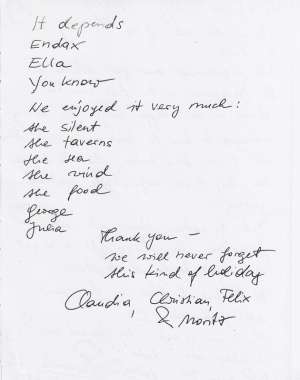 It depends
Endax
Ella
You know
We enjoyed it very much:
the silent
the taverns
the sea
the wind
the food
George
Julia
Thank you –
we will never forget
this kind of holiday
Claudia, Christian, Felix
& Moritz